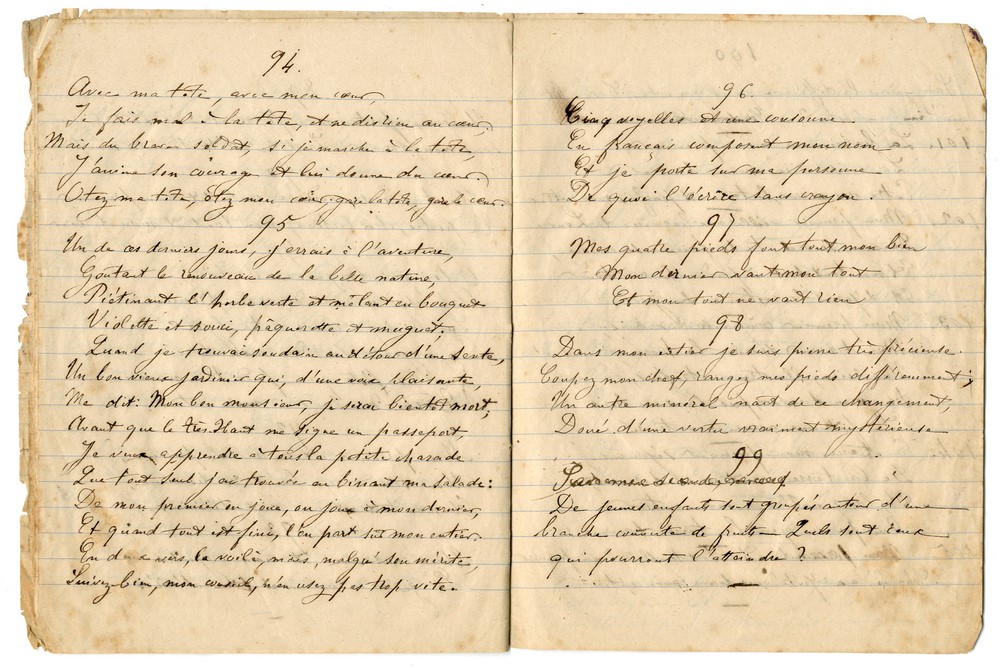 94.
Avec ma tête, avec mon cœur,
Je fais mal à la tête, et ne dis rien au cœur,
Mais du brave soldat, si je marche à la tête,
J'anime son courage et lui donne du cœur.
Otez ma tête, ôtez mon cœur, gare la tête, gare le cœur.
95
Un de ces derniers jours, j'errais à l'aventure,
Goutant le renouveau de la belle nature,
Piétinant l'herbe verte et mêlant en bouquet
Violette et souci, pâquerette et muguet,
Quand je trouvai soudain au détour d'une sente,
Un bon vieux jardinier qui, d'une voix plaisante,
Me dit: Mon bon monsieur, je serai bientôt mort,
Avant que le très-Haut me signe un passeport,
Je veux apprendre à tous la petite charade
Que tout seul j'ai trouvée en binant ma salade:
De mon premier on joue, on joue à mon dernier,
Et quand tout est fini, l'on part sur mon entier.
En deux vers, la voilà, mais, malgré son mérite,
Suivez bien, mon conseil, n'en usez pas trop vite.
96.
Cinq voyelles et une consonne
En français composent mon nom
Et je porte sur ma personne
De quoi l'écrire sans crayon.
97
Mes quatre pieds font tout mon bien
Mon dernier vaut mon tout
Et mon tout ne vaut rien
98
Dans mon entier je suis pierre très précieuse.
Coupez mon chef, rangez mes pieds différemment;
Un autre minéral naît de ce changement,
Doué d'une vertu vraiment mystérieuse
99
De jeunes enfants sont groupés autour d'une
branche couverte de fruits - Quels sont ceux
qui pourront l'atteindre?